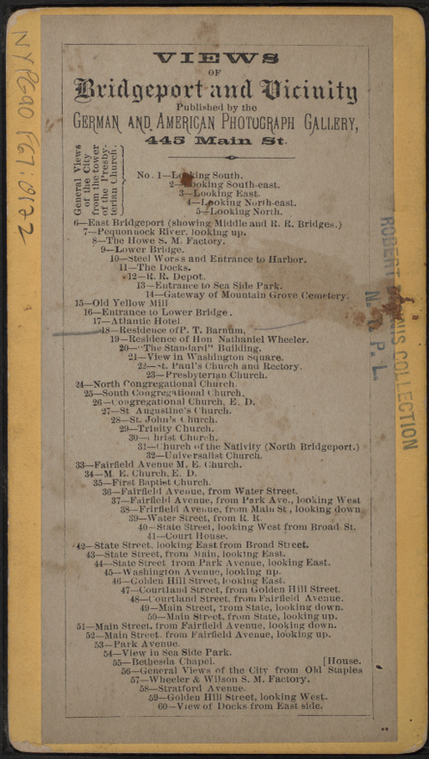 VIEWS
OF
Bridgeport and Vicinity
Published by the
GERMAN AND AMERICAN PHOTOGRAPH GALLERY,
445 Main St.
General Views
of the City
from the tower
of the Presby-
terian Church.
No. 1—Looking South.
2—Looking South-east.
3—Looking East.
4—Looking North-east.
5—Looking North.
6—East Bridgeport (showing Middle and R. R. Bridges.)
7—Pequonnock River, looking up.
8—The Howe S. M. Factory.
9—Lower Bridge.
10—Steel Works and Entrance to Harbor.
11—The Docks.
12—R. R. Depot.
13—Entrance to Sea Side Park.
14—Gateway of Mountain Grove Cemetery.
15—Old Yellow Mill
16—Entrance to Lower Bridge.
17—Atlantic Hotel
18—Residence of P. T. Barnum.
19—Residence of Hon Nathaniel Wheeler.
20—"The Standard" Building.
21—View in Washington Square.
22—St. Paul's Church and Rectory.
23—Presbyterian Church.
24—North Congregational Church.
25—South Congregational Church.
26—Congregational Church, E. D.
27—St Augustine's Church.
28—St. John's Church.
29—Trinity Church.
30—Christ Church.
31—Church of the Nativity (North Bridgeport.)
32—Universalist Church.
33—Fairfield Avenue M. E. Church.
34—M. E. Church, E. D.
35—First Baptist Church.
36—Fairfield Avenue, from Water Street.
37—Fairfield Avenue, from Park Ave., looking West
38—Frirfield Avenue, from Main St, looking down
39—Water Street, from R. R.
40—State Street, looking West from Broad St.
41—Court House.
42—State Street, looking East from Broad Street.
43—State Street, from Main, looking East.
44—State Street from Park Avenue, looking East.
45—Washington Avenue, looking up.
46—Golden Hill Street, looking East.
47—Courtland Street, from Golden Hill Street.
48—Courtland Street, from Fairfield Avenue.
49—Main Street, from State, looking down.
50—Main Street, from State, looking up.
51—Main Street, from Fairfield Avenue, looking down.
52—Main Street, from Fairfield Avenue, looking up.
53—Park Avenue.
54—View in Sea Side Park.
55—Bethesda Chapel. [House.
56—General Views of the City from Old Staples
57—Wheeler & Wilson S. M. Factory.
58—Stratford Avenue.
59—Golden Hill Street, looking West.
60—View of Docks from East side.
ROBERT COLLECTION
N. Y. P. L.